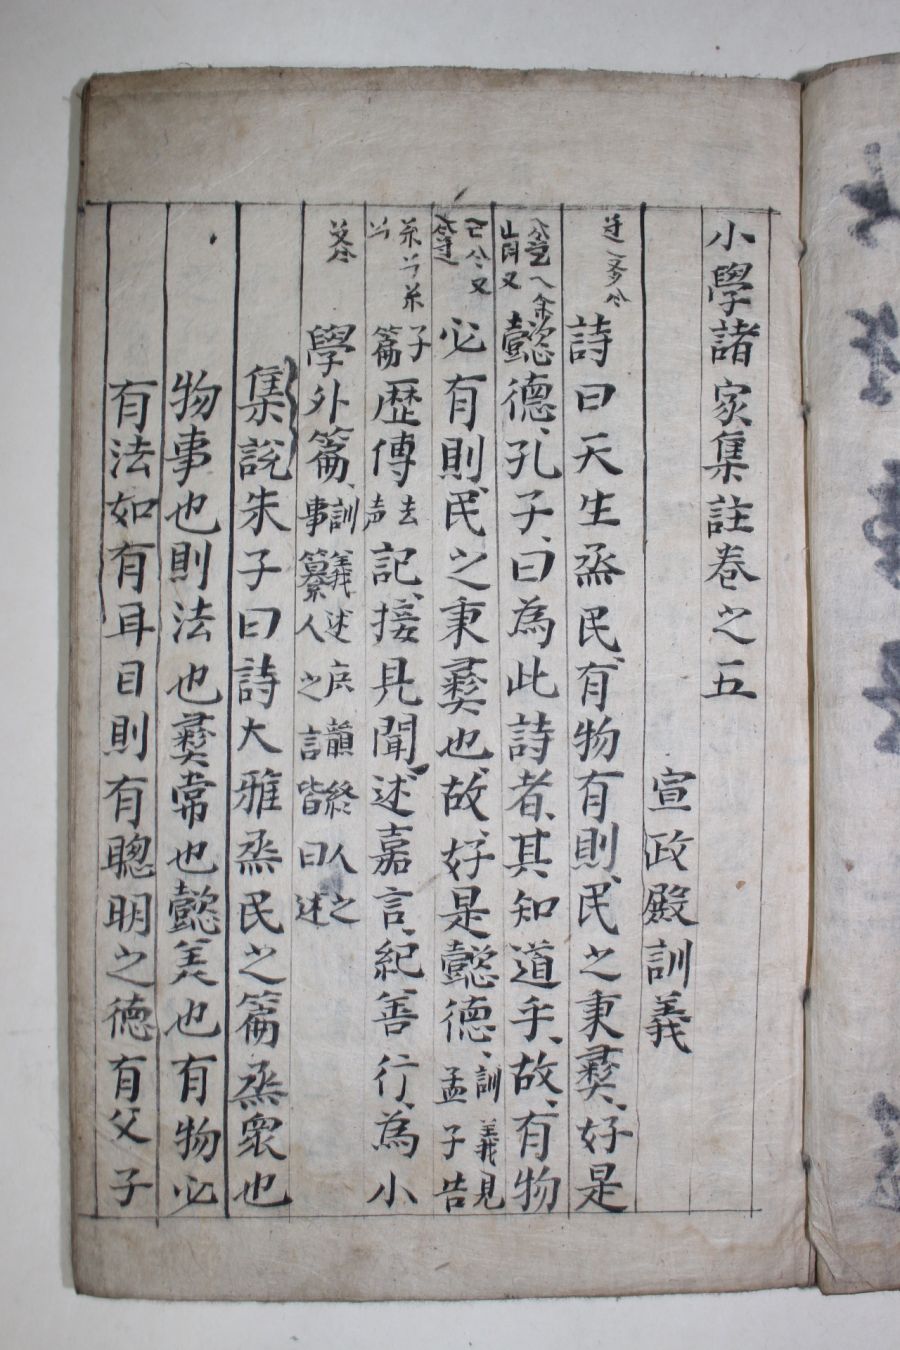 小學諸家集註卷之五
宣政殿訓義
詩曰天生烝民有物有則民之秉彝好是
懿德孔子曰為此詩者其知道乎故有物
必有則民之秉彝也故好是懿德訓義見孟子告
子篇歷傳去声記接見聞述嘉言紀善行為小
學外篇訓義述音韻終人之事纂人之言皆曰述
集說朱子曰詩大雅烝民之篇烝衆也
物事也則法也彝常也懿美也有物必
有法如有耳目則有聰明之德有父子